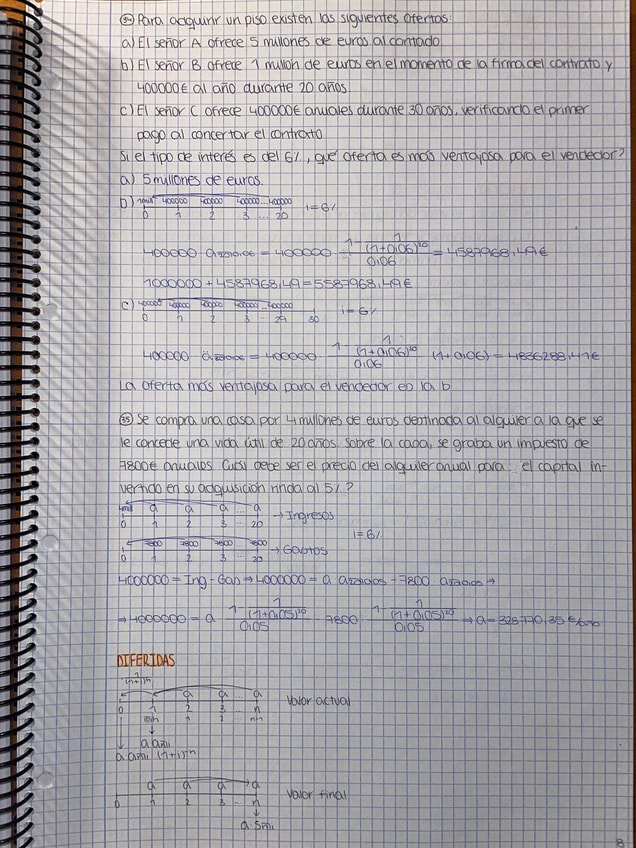 54 Para adquirir un piso existen las siguientes ofertas:
a) El señor A ofrece 5 millones de euros al contado
b) El señor B ofrece 1 millón de euros en el momento de la firma del contrato y
400000€ al año durante 20 años.
c) El señor C ofrece 400000€ anuales durante 30 años, verificando el primer
pago al concertar el contrato
Si el tipo de interés es del 6%, qué oferta es más ventajosa para el vendedor?
a) 5 millones de euros.
b) 1mill 400000 400000 400000 ... 400000 i=6%
0 1 2 3 ... 20
400000 · a20|0,06 = 400000 · (1 - 1/(1+0,06)^20)/0,06 = 4587968,49€
1000000 + 4587968,49 = 5587968,49€
c) 400000 400000 400000 400000 ... 400000 i=6%
0 1 2 3 ... 29 30
400000 · (1 - 1/(1+0,06)^20)/0,06 · (1+0,06) = 4836288,41€
La oferta más ventajosa para el vendedor en la b
55 Se compra una casa por 4 millones de euros destinada al alquiler a la que se
le concede una vida útil de 20 años. Sobre la casa, se graba un impuesto de
7800€ anuales. Cuál debe ser el precio del alquiler anual para el capital in-
vertido en su adquisición rinda al 5%?
4mill a a a ... a → Ingresos
0 1 2 3 ... 20
i=6%
7800 7800 7800 7800 → Gastos
0 1 2 3 ... 20
4000000 = Ing - Gas → 4000000 = a · a20|0,05 - 7800 · a20|0,05 →
→ 4000000 = a · (1 - 1/(1+0,05)^20)/0,05 - 7800 · (1 - 1/(1+0,05)^20)/0,05 → a = 328770,35
DIFERIDAS
a a a Valor actual
0 1 2 3 ... n
a an|i
a·an|i (1+i)^-n
a a a a Valor final
0 1 2 3 ... n
a·Sn|i
8